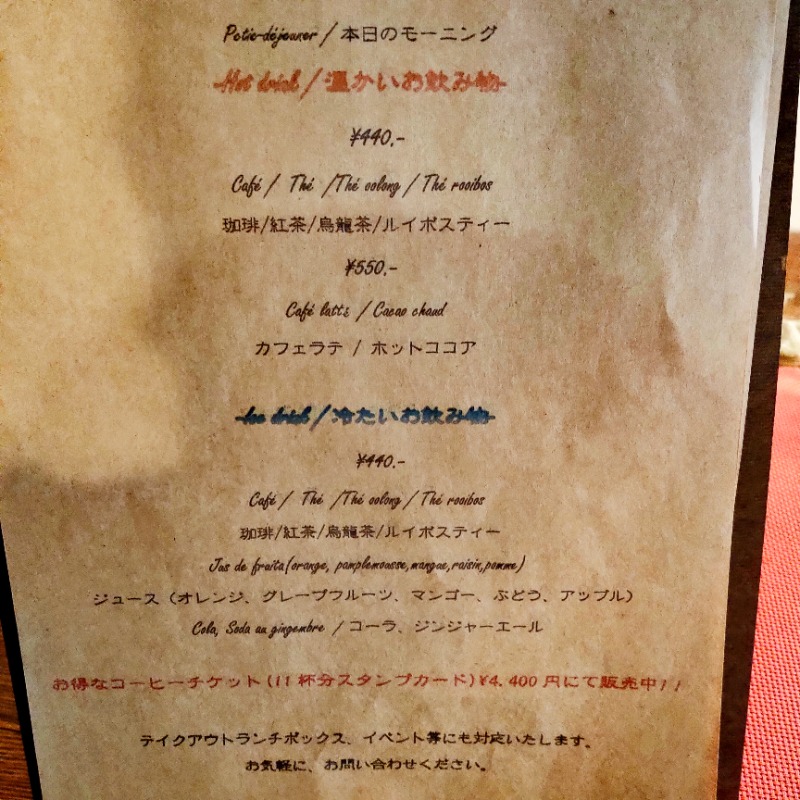 Petit-déjeuner / 本日のモーニング
-Hot drink / 温かいお飲み物-
¥440.-
Café / Thé /Thé oolong / Thé rooibos
珈琲/紅茶/烏龍茶/ルイボスティー
¥550.-
Café latté / Cacao chaud
カフェラテ / ホットココア
-Ice drink / 冷たいお飲み物-
¥440.-
Café / Thé /Thé oolong / Thé rooibos
珈琲/紅茶/烏龍茶/ルイボスティー
Jus de fruits(orange, pamplemousse,mangue,raisin,pomme)
ジュース（オレンジ、グレープフルーツ、マンゴー、ぶどう、アップル）
Cola, Soda au gingembre / コーラ、ジンジャーエール
お得なコーヒーチケット(11杯分スタンプカード)¥4,400円にて販売中!!
テイクアウトランチボックス、イベント等にも対応いたします。
お気軽に、お問い合わせください。